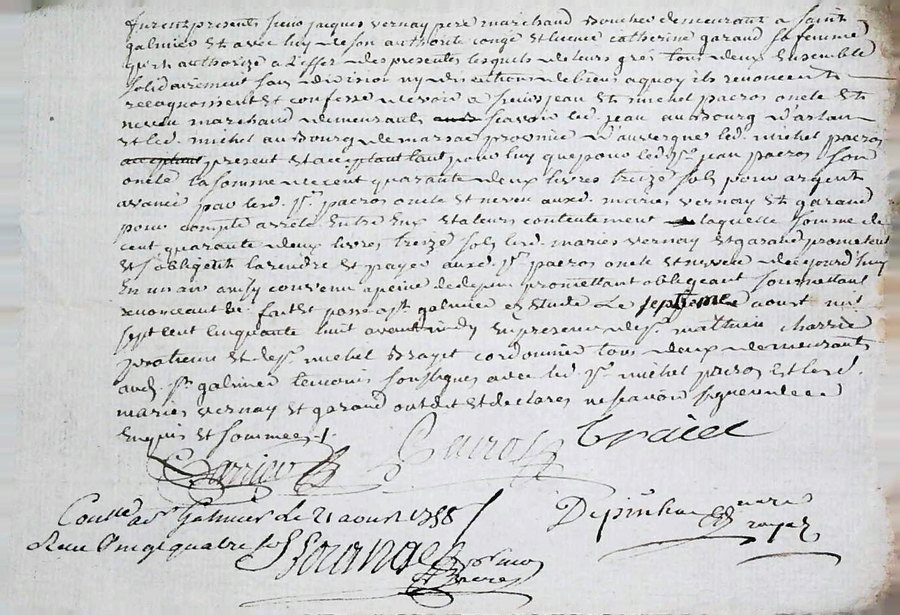 furent presents sieur jacques vernay pere marchand Boucher demeurant a saint
galmier Et avec luy de son authorité congé Et licence catherine garand sa femme
qu'il authorize a l'effet des presentes lesquels de leurs grés tous deux Ensemble
solidairement sans division ny discution de biens a quoy ils renoncent
recognoissent Et confesse devoir a sieurs jean Et michel pacros oncle Et
neveu marchand demeurants scavoir led. jean au Bourg d'arlan
Et led. michel au Bourg de marsac province d'auvergne led. michel pacros
acceptant present Et acceptant tant pour luy que pour led. sr. jean pacros son
oncle la somme de cent quarante deux livres treize sols pour argent
avancé par lesd. srs. pacros oncle Et neveu auxd. mariés vernay Et garand
pour compte arreté Entre Eux Et a leurs contentement laquelle somme de
cent quarante deux livres treize sols lesd. mariés vernay Et garand promettent
Et s'obligent la rendre Et payer auxd. srs. pacros oncle Et neveu de ce jourd'huy
En un an ainsy convenu a peine de depens promettant obligeant soumettant
renonceant &c. fait Et passé a st. galmier Etude le septieme aoust mil
sept cent cinquante huit avant midy En presence de sr. mathieu charrié
praticien Et de sr. michel Brayet cordonnier tous deux demeurants
aud. st. galmier temoins soussignes avec led. sr. michel pacros Et lesd.
mariés vernay Et garand ont dit Et declarés ne scavoir signer de ce
Enquis Et sommés
Pacros
Conlle a st. Galmier le 21 aoust 1758